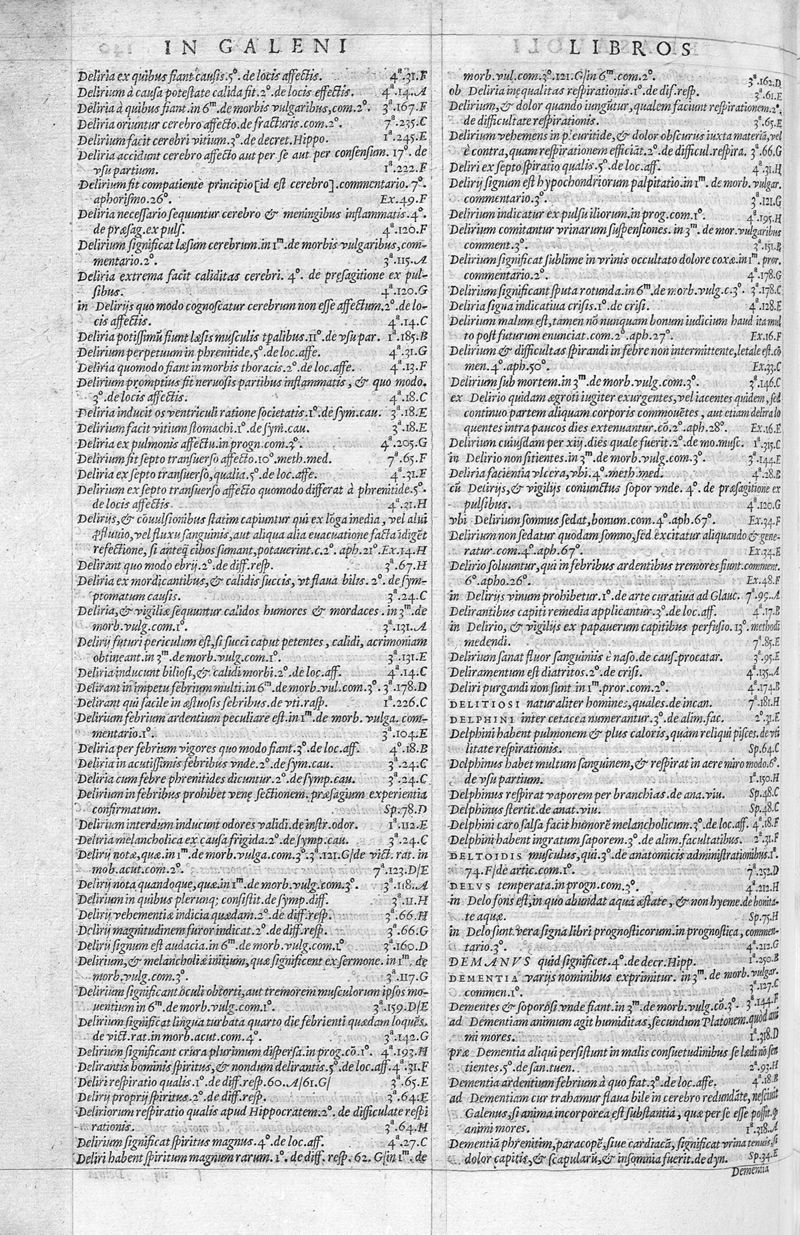 IN GALENI
Deliria ex quibus fiant causis.5°.de locis affectis. 4ª.31.F
Deliria à causa potestate calida fit.2°.de locis effectis. 4ª.14.A
Deliria à quibus fiant.in 6ᵐ.de morbis vulgaribus,com.2°. 3ª.167.F
Deliria oriuntur cerebro affecto.de fracturis.com.2°. 7ª.235.C
Delirium facit cerebri vitium.3°.de decret.Hippo. 1ª.245.E
Deliria accidunt cerebro affecto aut per se aut per consensum.17°. de
vsu partium. 1ª.222.F
Delirium fit compatiente principio[id est cerebro].commentario.7°.
aphorismo.26°. Ex.49.F
Deliria necessario sequuntur cerebro & meningibus inflammatis.4°.
de præsag.ex puls. 4ª.120.F
Delirium significat læsum cerebrum.in 1ᵐ.de morbis vulgaribus,com-
mentario.2°. 3ª.115.A
Deliria extrema facit caliditas cerebri. 4°. de presagitione ex pul-
sibus. 4ª.120.G
in Delirijs quo modo cognoscatur cerebrum non esse affectum.2°.de lo-
cis affectis. 4ª.14.C
Deliria potissimū fiunt læsis musculis tpalibus.11°.de vsu par. 1ª.185.B
Delirium perpetuum in phrenitide.5°.de loc.affe. 4ª.31.G
Deliria quomodo fiant in morbis thoracis.2°.de loc.affe. 4ª.13.F
Delirium promptius fit neruosis partibus inflammatis, & quo modo.
3°.de locis affectis. 4ª.18.C
Deliria inducit os ventriculi ratione societatis.1°.de sym.cau. 3ª.18.E
Delirium facit vitium stomachi.1°.de sym.cau. 3ª.18.E
Deliria ex pulmonis affectu.in progn.com.3°. 4ª.205.G
Delirium fit septo transuerso affecto.10°.meth.med. 7ª.65.F
Deliria ex septo transuerso,qualia.5°.de loc.affe. 4ª.31.F
Delirium ex septo transuerso affecto quomodo differat à phrenitide.5°.
de locis affectis. 4ª.31.H
Delirijs,& cōuulsionibus statim capiuntur qui ex lōga inedia, vel alui
ꝓfluuio,vel fluxu sanguinis,aut aliqua alia euacuatione facta īdigēt
refectione, si anteq̃ cibos sumant,potauerint.c.2°. aph.21°.Ex.14.H
Delirant quo modo ebrij.2°.de diff.resp. 3ª.67.H
Deliria ex mordicantibus,& calidis succis, vt flaua bilis. 2°.de sym-
ptomatum causis. 3ª.24.C
Deliria,& vigiliæ sequuntur calidos humores & mordaces. in 3ᵐ.de
morb.vulg.com.1°. 3ª.131.A
Delirij futuri periculum est,si succi caput petentes, calidi, acrimoniam
obtineant.in 3ᵐ.de morb.vulg.com.1°. 3ª.131.E
Deliria inducunt biliosi,& calidi morbi.2°.de loc.aff. 4ª.14.C
Delirant in impetu febrium multi.in 6ᵐ.de morb.vul.com.3°. 3ª.178.D
Delirant qui facile in æstuosis febribus.de vti.rasp. 1ª.226.C
Delirium febrium ardentium peculiare est.in 1ᵐ.de morb. vulga. com-
mentario.1°. 3ª.104.E
Deliria per febrium vigores quo modo fiant.3°.de loc.aff. 4ª.18.B
Deliria in acutissimis febribus vnde.2°.de sym.cau. 3ª.24.C
Deliria cum febre phrenitides dicuntur.2°.de symp.cau. 3ª.24.C
Delirium in febribus prohibet venę sectionem. præsagium experientia
confirmatum. Sp.78.D
Delirium interdum inducunt odores validi.de instr.odor. 1ª.112.E
Deliria melancholica ex causa frigida.2°.de symp.cau. 3ª.24.C
Delirij notæ,quæ.in 1ᵐ.de morb.vulga.com.3°.3ª.121.G/de vict. rat. in
mob.acut.com.2°. 7ª.123.D/E
Delirij nota quandoque,quæ.in 1ᵐ.de morb.vulg.com.3°. 3ª.118.A
Delirium in quibus plerunq; consistit.de symp.diff. 3ª.11.H
Delirij vehementiæ indicia quædam.2°.de diff.resp. 3ª.66.H
Delirij magnitudinem furor indicat.2°.de diff.resp. 3ª.66.G
Delirij signum est audacia.in 6ᵐ.de morb.vulg.com.1° 3ª.160.D
Delirium,& melancholiæ initium,quæ significent ex sermone. in 1ᵐ. de
morb.vulg.com.3°. 3ª.117.G
Delirium significant oculi obtorti,aut tremorem musculorum ipsos mo-
uentium in 6ᵐ.de morb.vulg.com.1°. 3ª.159.D/E
Delirium significat lingua turbata quarto die febrienti quædam loquēs.
de vict.rat.in morb.acut.com.4°. 3ª.142.G
Delirium significant crura plurimum dispersa.in prog.cō.1°. 4ª.193.H
Delirantis hominis spiritus,& nondum delirantis.5°.de loc.aff.4ª.31.F
Deliri respiratio qualis.1°.de diff.resp.60.A/61.G/ 3ª.65.E
Delirij proprij spiritus.2°.de diff.resp. 3ª.64.E
Deliriorum respiratio qualis apud Hippocratem.2°.de difficulate respi
rationis. 3ª.64.H
Delirium significat spiritus magnus.4°.de loc.aff. 4ª.27.C
Deliri habent spiritum magnum rarum. 1°.de diff. resp. 62. G/in 1ᵐ. de
LIBROS
morb.vul.com.3°.121.G/in 6ᵐ.com.2°. 3ª.162.D
ob Deliria inequalitas respirationis.1°.de dif.resp. 3ª.61.E
Delirium,& dolor quando iungūtur,qualem faciunt respirationem.2°.
de difficultate respirationis. 3ª.65.E
Delirium vehemens in pleuritide,& dolor obscurus iuxta materiā,vel
è contra,quam respirationem efficiāt.2°.de difficul.respira. 3ª.66.G
Deliri ex septo spiratio qualis.5°.de loc.aff. 4ª.31.H
Delirij signum est hypochondriorum palpitatio.in 1ᵐ.de morb.vulgar.
commentario.3°. 3ª.121.G
Delirium indicatur ex pulsu iliorum.in prog.com.1°. 4ª.195.H
Delirium comitantur vrinarum suspensiones. in 3ᵐ.de mor.vulgaribus
comment.3°. 3ª.151.B
Delirium significat sublime in vrinis occultato dolore coxæ.in 1ᵐ.pror.
commentario.2°. 4ª.178.G
Delirium significant sputa rotunda.in 6ᵐ.de morb.vulg.c.3°. 3ª.178.C
Deliria signa indicatiua crisis.1°.de crisi. 4ª.128.E
Delirium malum est,tamen nō nunquam bonum iudicium haud ita mul
to post futurum enunciat.com.2°.aph.27°. Ex.16.F
Delirium & difficultas spirandi in febre non intermittente,letale est.cō
men.4°.aph.50°. Ex.33.C
Delirium sub mortem.in 3ᵐ.de morb.vulg.com.3°. 3ª.146.C
ex Delirio quidam ægroti iugiter exurgentes,vel iacentes quidem,sed
continuo partem aliquam corporis commouētes, aut etiam delira lo
quentes intra paucos dies extenuantur.cō.2°.aph.28°. Ex.16.E
Delirium cuiusdam per xij.dies quale fuerit.2°.de mo.musc. 1ª.315.C
in Delirio non sitientes.in 3ᵐ.de morb.vulg.com.3°. 3ª.144.E
Deliria facientia vlcera,vbi.4°.meth.med. 4ª.28.B
cū Delirijs,& vigilijs coniunctus sopor vnde. 4°. de præsagitione ex
pulsibus. 4ª.120.G
vbi Delirium somnus sedat,bonum.com.4°.aph.67°. Ex.34.F
Delirium non sedatur quodam somno,sed excitatur aliquando & gene-
ratur.com.4°.aph.67°. Ex.34.E
Delirio soluuntur,qui in febribus ardentibus tremores fiunt.comment.
6°.apho.26°. Ex.48.F
in Delirijs vinum prohibetur.1°.de arte curatiua ad Glauc. 7ª.95.A
Delirantibus capiti remedia applicantur.3°.de loc.aff. 4ª.17.B
in Delirio, & vigilijs ex papauerum capitibus perfusio. 13°.methodi
medendi. 7ª.85.E
Delirium sanat fluor sanguinis è naso.de caus.procatar. 3ª.95.E
Deliramentum est diatritos.2°.de crisi. 4ª.135.A
Deliri purgandi non sunt in 1ᵐ.pror.com.2°. 4ª.174.B
DELITIOSI naturaliter homines,quales.de incan. 7ª.181.H
DELPHINI inter cetacea numerantur.3°.de alim.fac. 2ª.31.E
Delphini habent pulmonem & plus caloris,quam reliqui pisces.de vti
litate respirationis. Sp.64.C
Delphinus habet multum sanguinem,& respirat in aere miro modo.6°.
de vsu partium. 1ª.150.H
Delphinus respirat vaporem per branchias.de ana.viu. Sp.48.C
Delphinus stertit.de anat.viu. Sp.48.C
Delphini caro salsa facit humorē melancholicum.3°.de loc.aff. 4ª.18.F
Delphini habent ingratum saporem.3°.de alim.facultatibus. 2ª.31.F
DELTOIDIS musculus,qui.3°.de anatomicis administrationibus.1ª.
74.F/de artic.com.1°. 7ª.252.D
DELVS temperata.in progn.com.3°. 4ª.212.H
in Delo fons est,in quo abundat aqua æstate, & non hyeme.de bonita-
te aquæ. Sp.75.H
in Delo sunt vera signa libri prognosticorum.in prognostica, commen-
tario.3°. 4ª.212.G
DEMANVS quid significet.4°.de decr.Hipp. 1ª.250.B
DEMENTIA varijs nominibus exprimitur. in 3ᵐ. de morb. vulgar.
commen.1°. 3ª.127.C
Dementes & soporosi vnde fiant.in 3ᵐ.de morb.vulg.cō.3°. 3ª.144.F
ad Dementiam animum agit humiditas,secundum Platonem.quod ani
mi mores. 1ª.318.D
præ Dementia aliqui persistunt in malis consuetudinibus se lædi nō sen
tientes.5°.de san.tuen. 2ª.93.H
Dementia ardentium febrium à quo fiat.3°.de loc.affe. 4ª.18.B
ad Dementiam cur trahamur flaua bile in cerebro redundāte, nesciuit
Galenus,si anima incorporea est substantia, quæ per se esse possit.ꝙ
animi mores. 1ª.318.A
Dementiā phrenitim,paracopē,siue cardiacā, significat vrina tenuis,si
dolor capitis,& scapularū,& insomnia fuerit.de dyn. Sp.34.E
Dementia